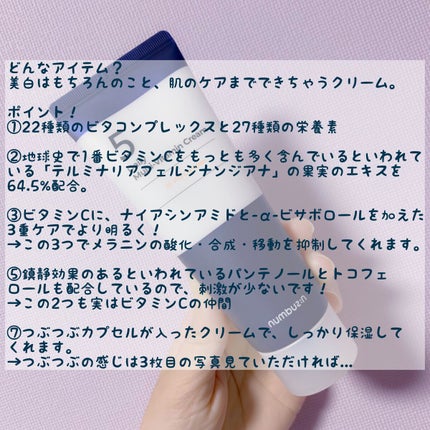 どんなアイテム？
美白はもちろんのこと、肌のケアまでできちゃうクリーム。
ポイント！
①22種類のビタコンプレックスと27種類の栄養素
②地球史で1番ビタミンCをもっとも多く含んでいるといわれて
いる「テルミナリアフェルジナンジアナ」の果実のエキスを
64.5%配合。
③ビタミンCに、ナイアシンアミドと-α-ビサボロールを加えた
3重ケアでより明るく！
→この3つでメラニンの酸化・合成・移動を抑制してくれます。
⑤鎮静効果のあるといわれているパンテノールとトコフェ
ロールも配合しているので、刺激が少ないです！
→この2つも実はビタミンCの仲間
⑦つぶつぶカプセルが入ったクリームで、しっかり保湿して
くれます。
→つぶつぶの感じは3枚目の写真見ていただければ…
5
Cream
numbuz:n